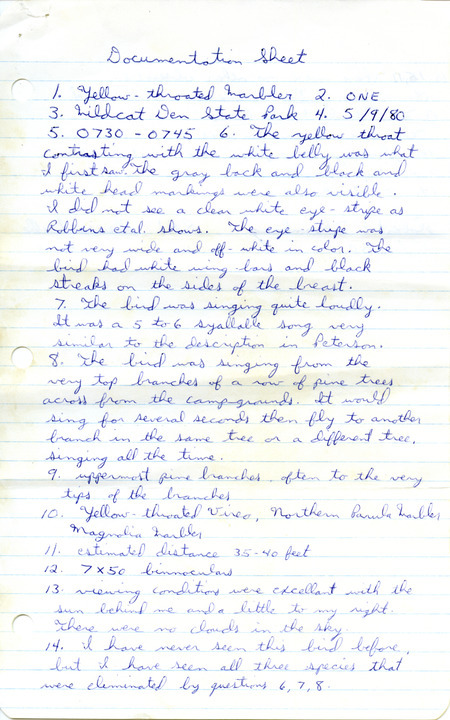 Documentation Sheet
1. Yellow-throated Warbler 2. ONE
3. Wildcat Den State Park 4. 5/9/80
5. 0730 - 0745 6. The yellow throat
contrasting with the white belly was what
I first saw. The gray back and black and
white head markings were also visible.
I did not see a clear white eye-stripe as
Robbins etal. shows. The eye-stripe was
not very wide and off-white in color. The
bird had white wing-bars and black
streaks on the sides of the breast.
7. The bird was singing quite loudly.
It was a 5 to 6 syallable song very
similar to the description in Peterson.
8. The bird was singing from the
very top branches of a row of pine trees
across from the campgrounds. It would
sing for several seconds then fly to another
branch in the same tree or a different tree,
singing all the time.
9. uppermost pine branches often to the very
tips of the branches
10. Yellow-throated Vireo, Northern Parula Warbler
Magnolia Warbler
11. estimated distance 35-40 feet
12. 7x50 binnoculars
13. viewing conditions were excellant with the
sun behind me and a little to my right.
There were no clouds in the sky.
14. I have never seen this bird before,
but I have seen all three species that
were eliminated by questions 6, 7, 8.